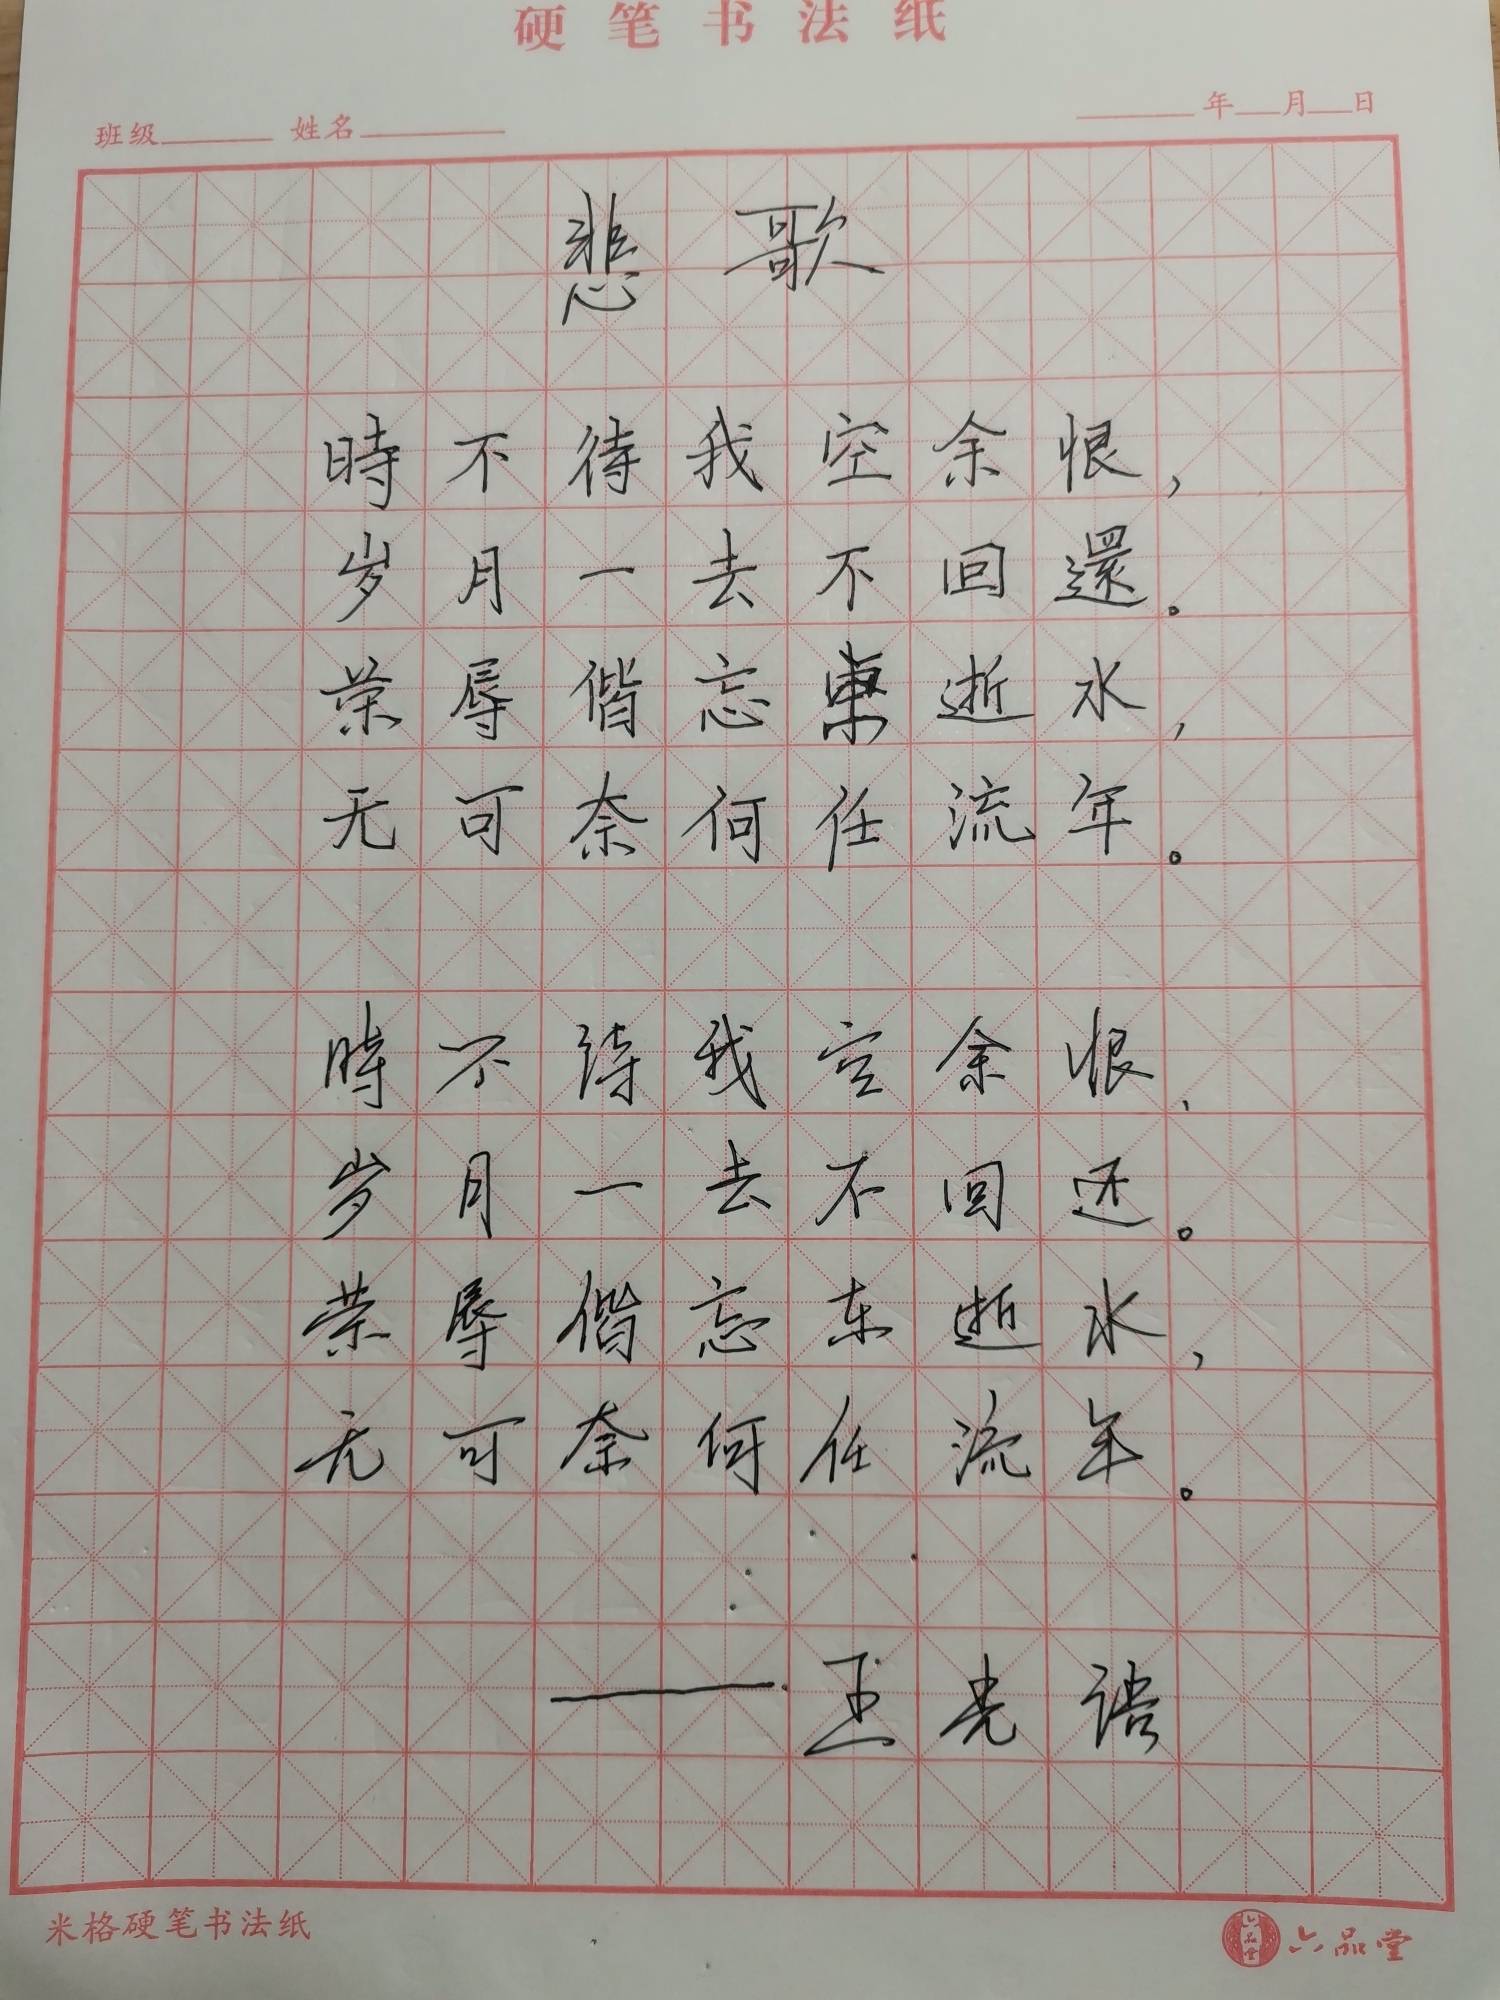 硬笔书法纸
班级 姓名 年 月 日
悲歌
時不待我空余恨，
岁月一去不回還。
荣辱偕忘東逝水，
无可奈何任流年。
時不待我空余恨，
岁月一去不回还。
荣辱偕忘东逝水，
无可奈何任流年。
——王光语
米格硬笔书法纸
六品堂 六品堂